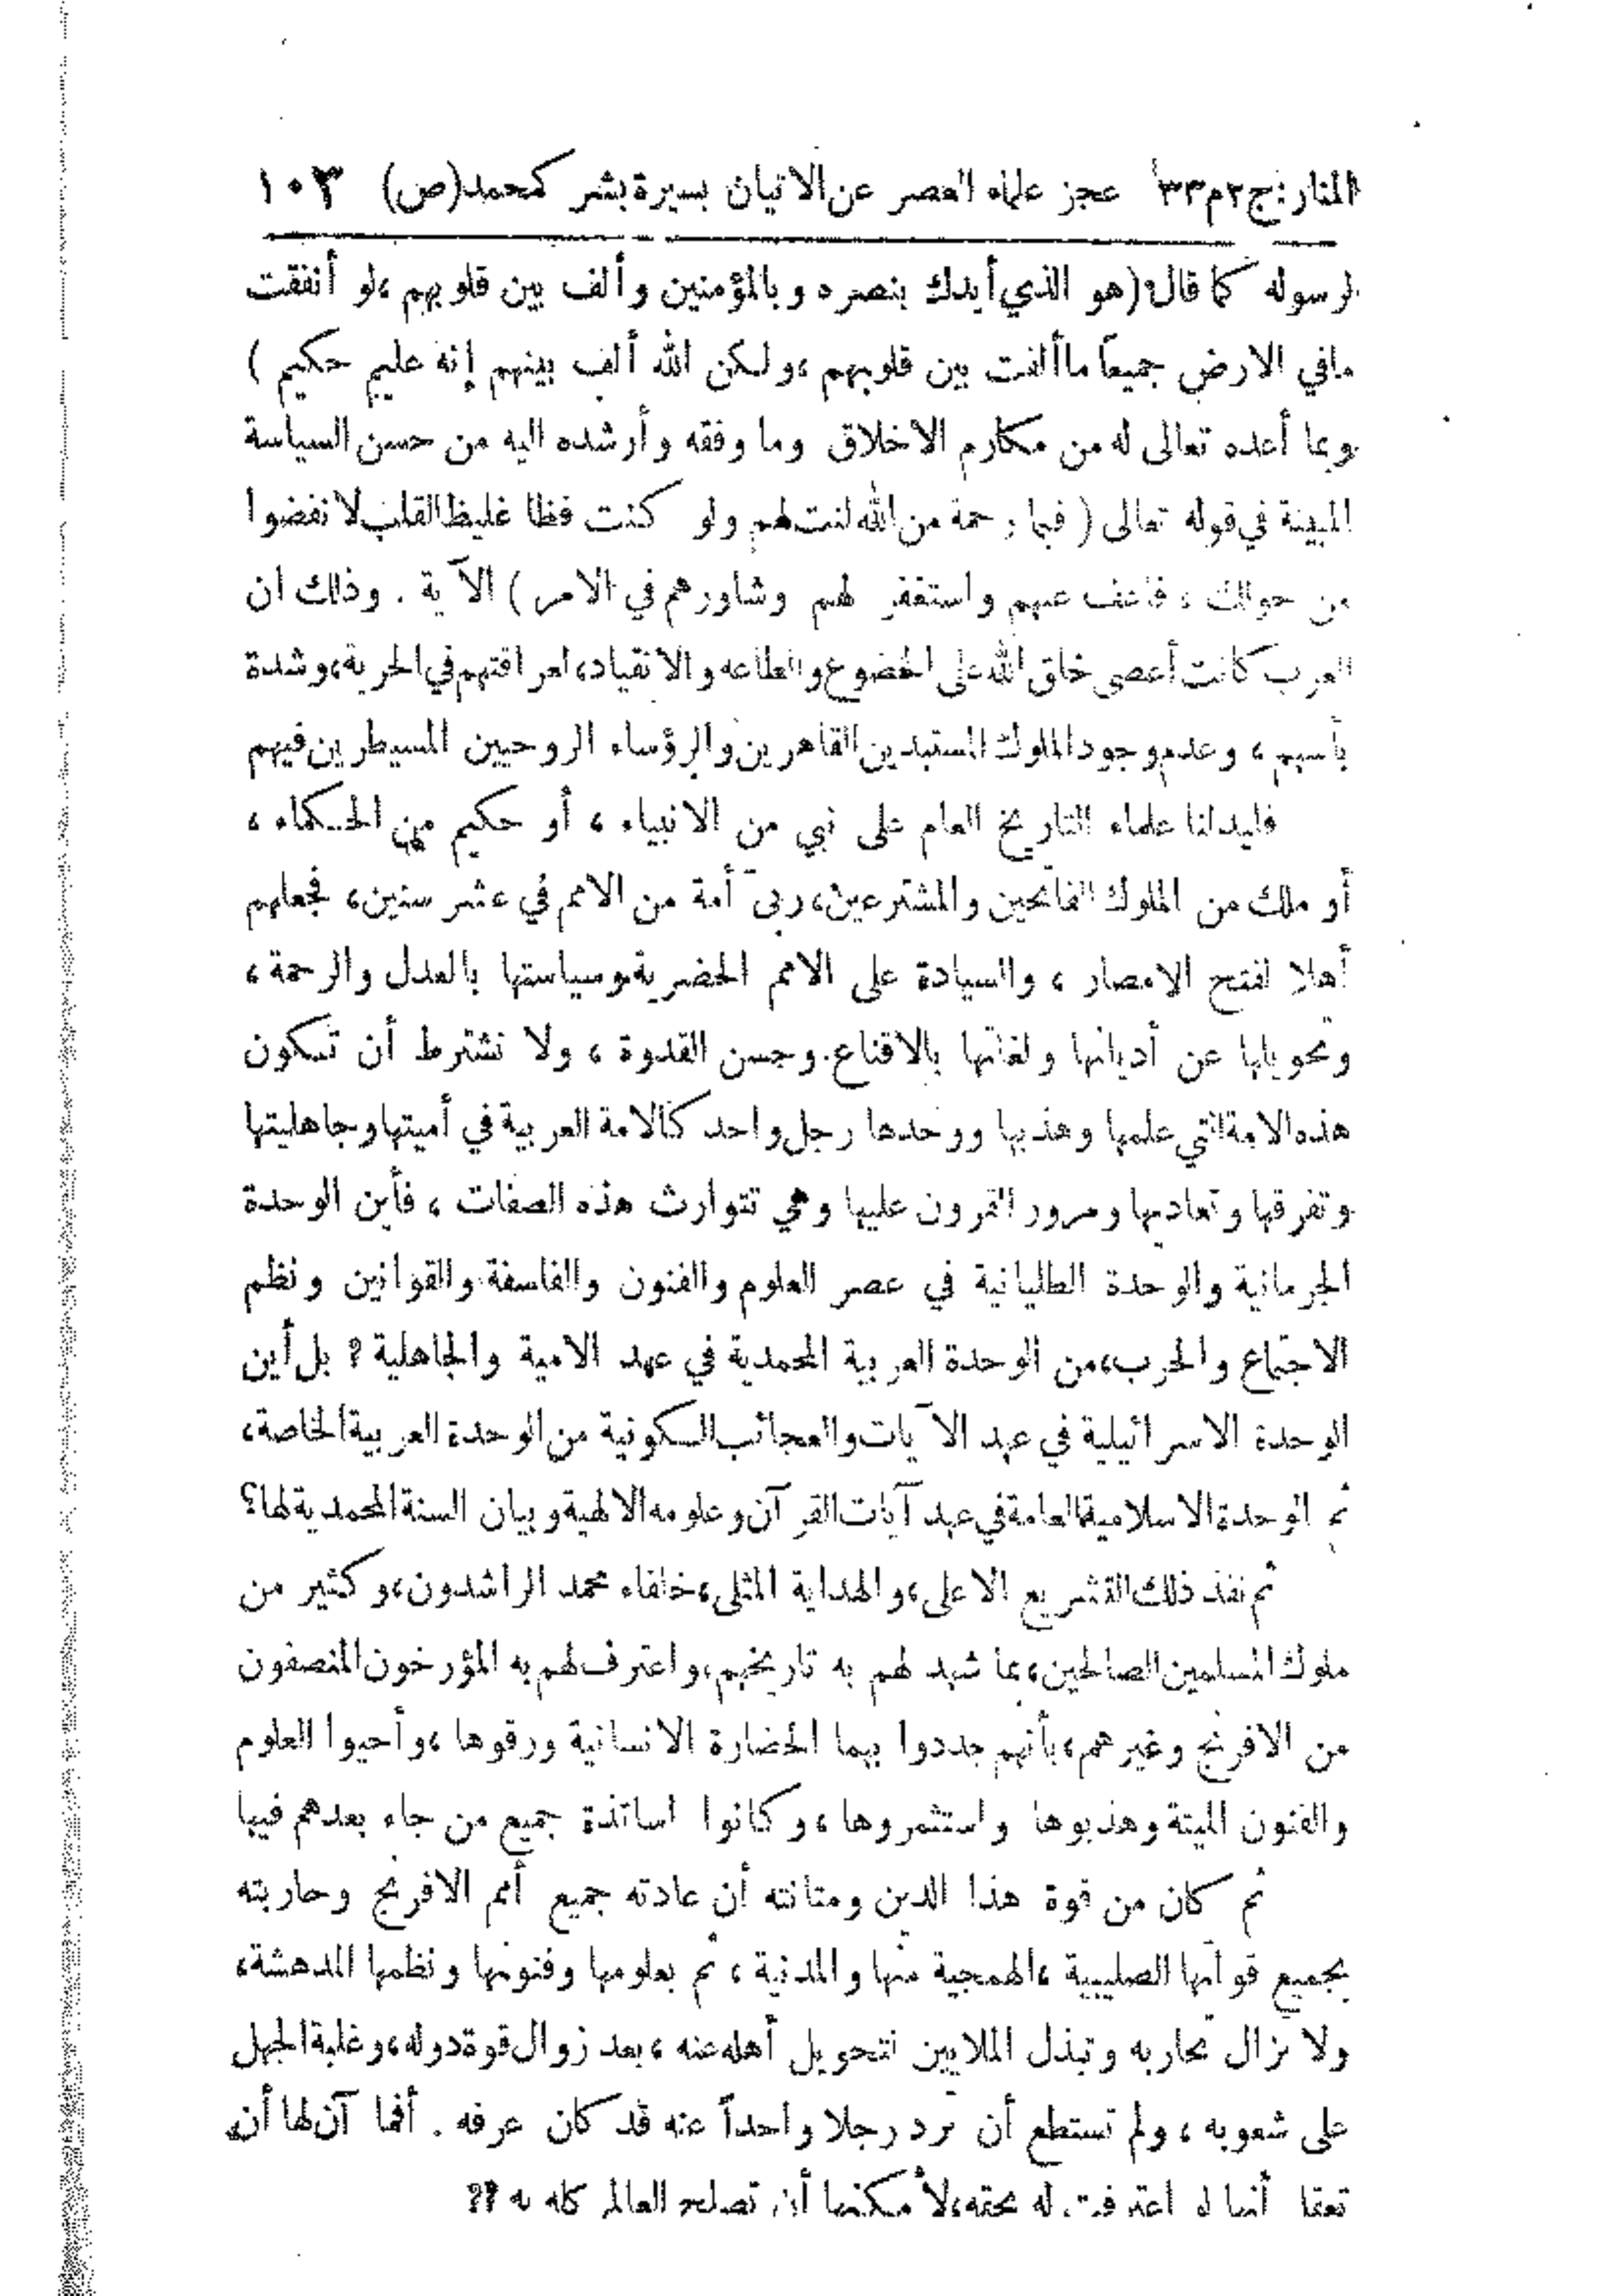 المنار: ج ٢ م ٣٣ عجز علماء العصر عن الاتيان بسيرة بشر كمحمد (ص) ١٠٣
لرسوله كما قال (هو الذي أيدك بنصره وبالمؤمنين وألف بين قلوبهم ، لو أنفقت
مافي الارض جميعاً ماألفت بين قلوبهم ، ولكن الله ألف بينهم إنه عليم حكيم )
وبما أعده تعالى له من مكارم الاخلاق وما وفقه وأرشده اليه من حسن السياسة
المبينة في قوله تعالى ( فبما رحمة من الله لنت لهم ولو كنت فظا غليظ القلب لانفضوا
من حولك ، فاعف عنهم واستغفر لهم وشاورهم في الامر ) الآية . وذلك ان
العرب كانت أعصى خلق الله على الخضوع والطاعه والانقياد، لعراقتهم في الحرية، وشدة
بأسهم ، وعدم وجود الملوك المستبدين القاهرين والرؤساء الروحيين المسيطرين فيهم
فليدلنا علماء التاريخ العام على نبي من الانبياء ، أو حكيم من الحكماء ،
أو ملك من الملوك الفاتحين والمشترعين، ربى أمة من الامم في عشر سنين، فجعلهم
أهلا لفتح الامصار ، والسيادة على الامم الحضرية وسياستها بالعدل والرحمة ،
وتحويلها عن أديانها ولغاتها بالاقناع وحسن القدوة ، ولا نشترط أن تكون
هذه الامة التي علمها وهذبها ووحدها رجل واحد كالامة العربية في أميتها وجاهليتها
وتفرقها وتعاديها ومرور القرون عليها وهي تتوارث هذه الصفات ، فأين الوحدة
الجرمانية والوحدة الطليانية في عصر العلوم والفنون والفلسفة والقوانين ونظم
الاجتماع والحرب، من الوحدة العربية المحمدية في عهد الامية والجاهلية ؟ بل أين
الوحدة الاسرائيلية في عهد الآيات والعجائب الكونية من الوحدة العربية الخاصة،
ثم الوحدة الاسلامية العامة في عهد آيات القرآن وعلومه الالهية وبيان السنة المحمدية لها؟
ثم نفذ ذلك التشريع الاعلى، والهداية المثلى، خلفاء محمد الراشدون، وكثير من
ملوك المسلمين الصالحين، بما شهد لهم به تاريخهم، واعترف لهم به المؤرخون المنصفون
من الافرنج وغيرهم، بأنهم جددوا بهما الحضارة الانسانية ورقوها ، وأحيوا العلوم
والفنون الميتة وهذبوها واستثمروها ، وكانوا اساتذة جميع من جاء بعدهم فيها
ثم كان من قوة هذا الدين ومتانته أن عادته جميع أمم الافرنج وحاربته
بجميع قواتها الصليبية ، الهمجية منها والمدنية ، ثم بعلومها وفنونها ونظمها المدهشة،
ولا تزال تحاربه وتبذل الملايين لتحويل أهله عنه ، بعد زوال قوة دوله، وغلبة الجهل
على شعوبه ، ولم تستطع أن ترد رجلا واحداً عنه قد كان عرفه . أفما آن لها أن
تعقل أنها لو اعترفت له بحقه، لأمكنها أن تصلح العالم كله به ؟؟